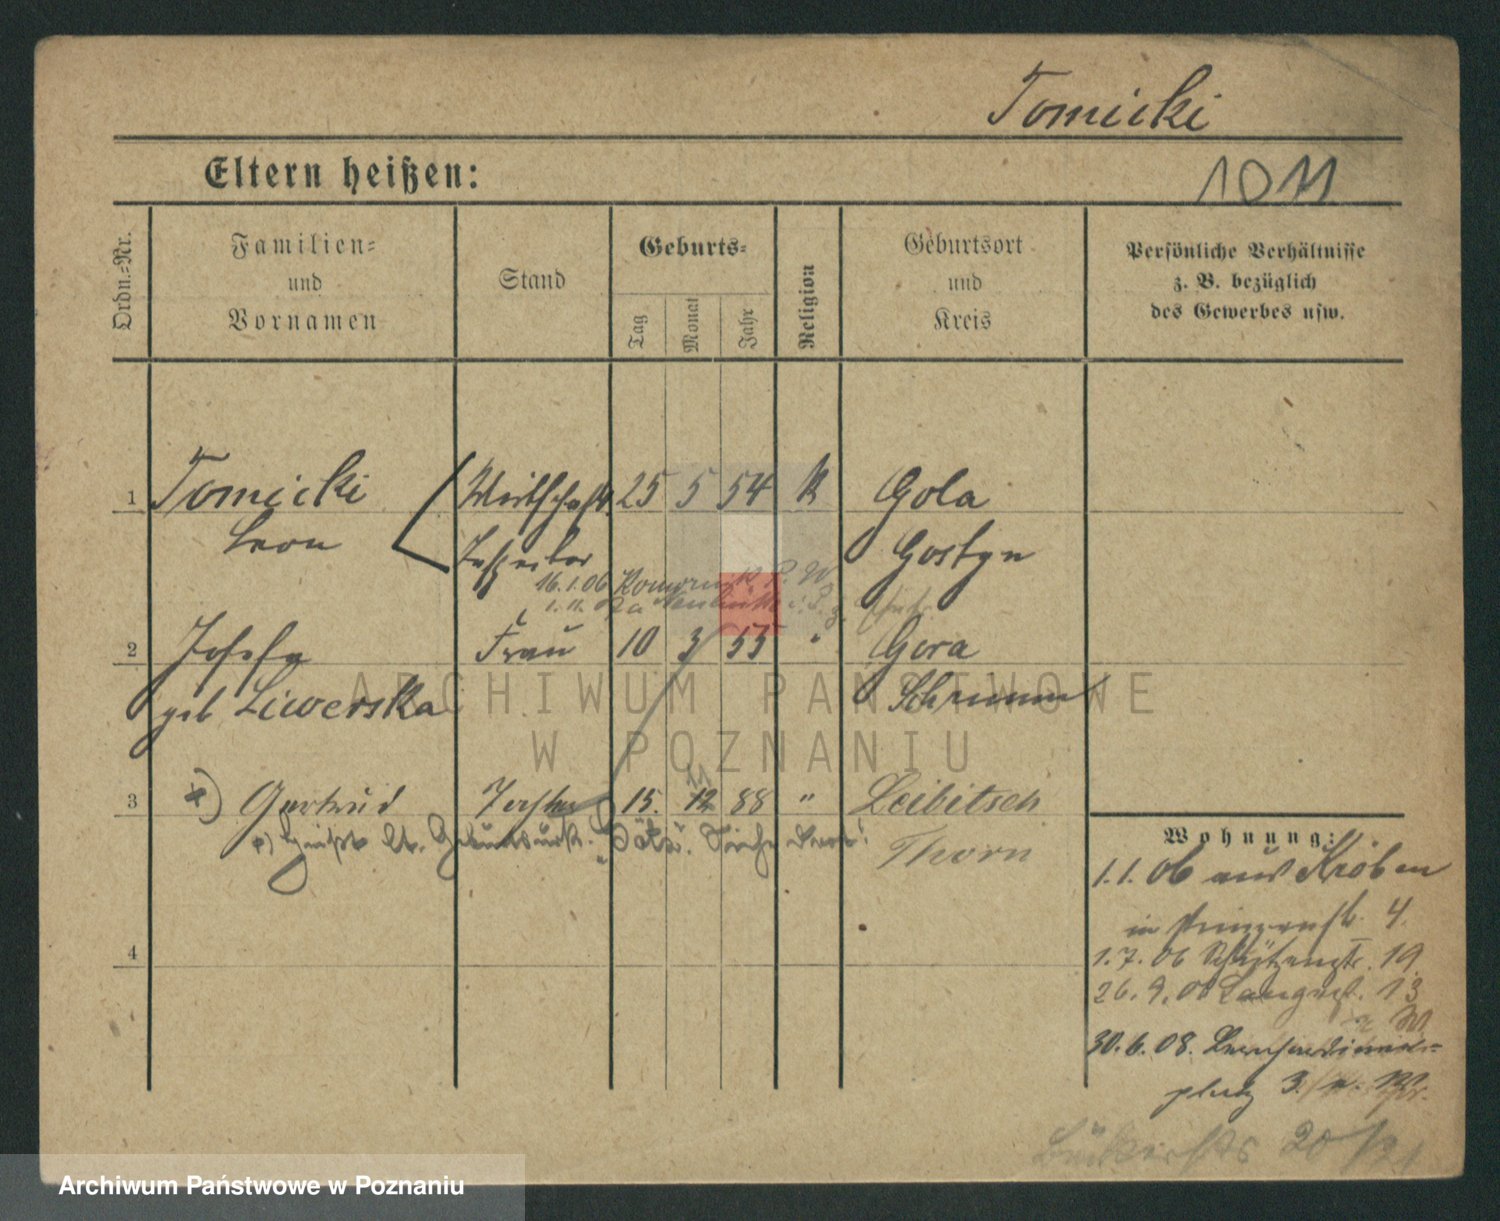 Tomicki
Eltern heißen:
1011
Ordn.=Nr.
Familien=
und
Vornamen
Stand
Geburts=
Tag
Monat
Jahr
Religion
Geburtsort
und
Kreis
Persönliche Verhältnisse
z. B. bezüglich
des Gewerbes usw.
1 Tomicki Wirtschafts 25 5 54 K Gola
Leon Inspektor Gostyn
16.1.06
1.11.
2 Josefa Frau 10 3 55 " Gora
geb Liwerska Schrimm
ARCHIWUM PAŃSTWOWE
W POZNANIU
11
3 *) Gertrud Tochter 15. 12 88 " Leibitsch
*) heißt lt. Geburtsurk.
Thorn
4
Wohnung:
1.1.06 aus Kröben
in Prinzenstr. 4.
1.7.06 Schützenstr. 19
26.9.06 Langestr. 13
30.6.08. Bernhardiner=
platz 3.
20
Archiwum Państwowe w Poznaniu